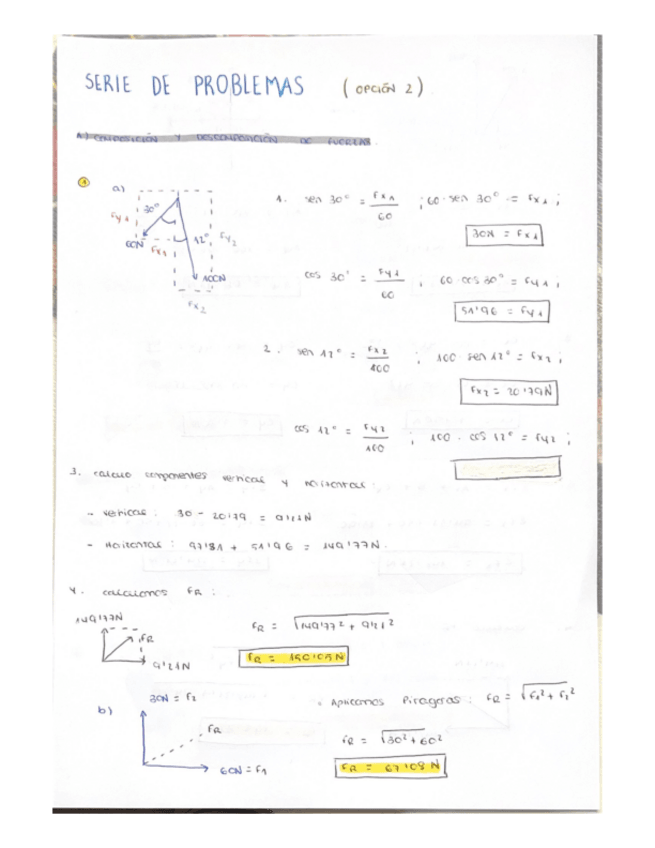 SERIE DE PROBLEMAS (OPCIÓN 2)
A) COMPOSICIÓN Y DESCOMPOSICIÓN DE FUERZAS.
1 a)
30°
Fy1
60N
Fx1
12°
Fy2
100N
Fx2
1. sen 30° = Fx1/60 ; 60 · sen 30° = Fx1 ;
30N = Fx1
cos 30° = Fy1/60 ; 60 · cos 30° = Fy1 ;
51'96 = Fy1
2. sen 12° = Fx2/100 ; 100 · sen 12° = Fx2 ;
Fx2 = 20'79N
cos 12° = Fy2/100 ; 100 · cos 12° = Fy2 ;
3. calculo componentes verticas y horizontas:
- verticas : 30 - 20'79 = 9'21N
- Horizontas : 97'81 + 51'96 = 149'77N.
4. calculamos FR :
149'77N
FR
9'21N
FR = √149'77² + 9'21²
FR = 150'05N
b)
30N = F2
FR
60N = F1
Aplicamos Pitagoras : FR = √F1² + F2²
FR = √30² + 60²
FR = 67'08 N